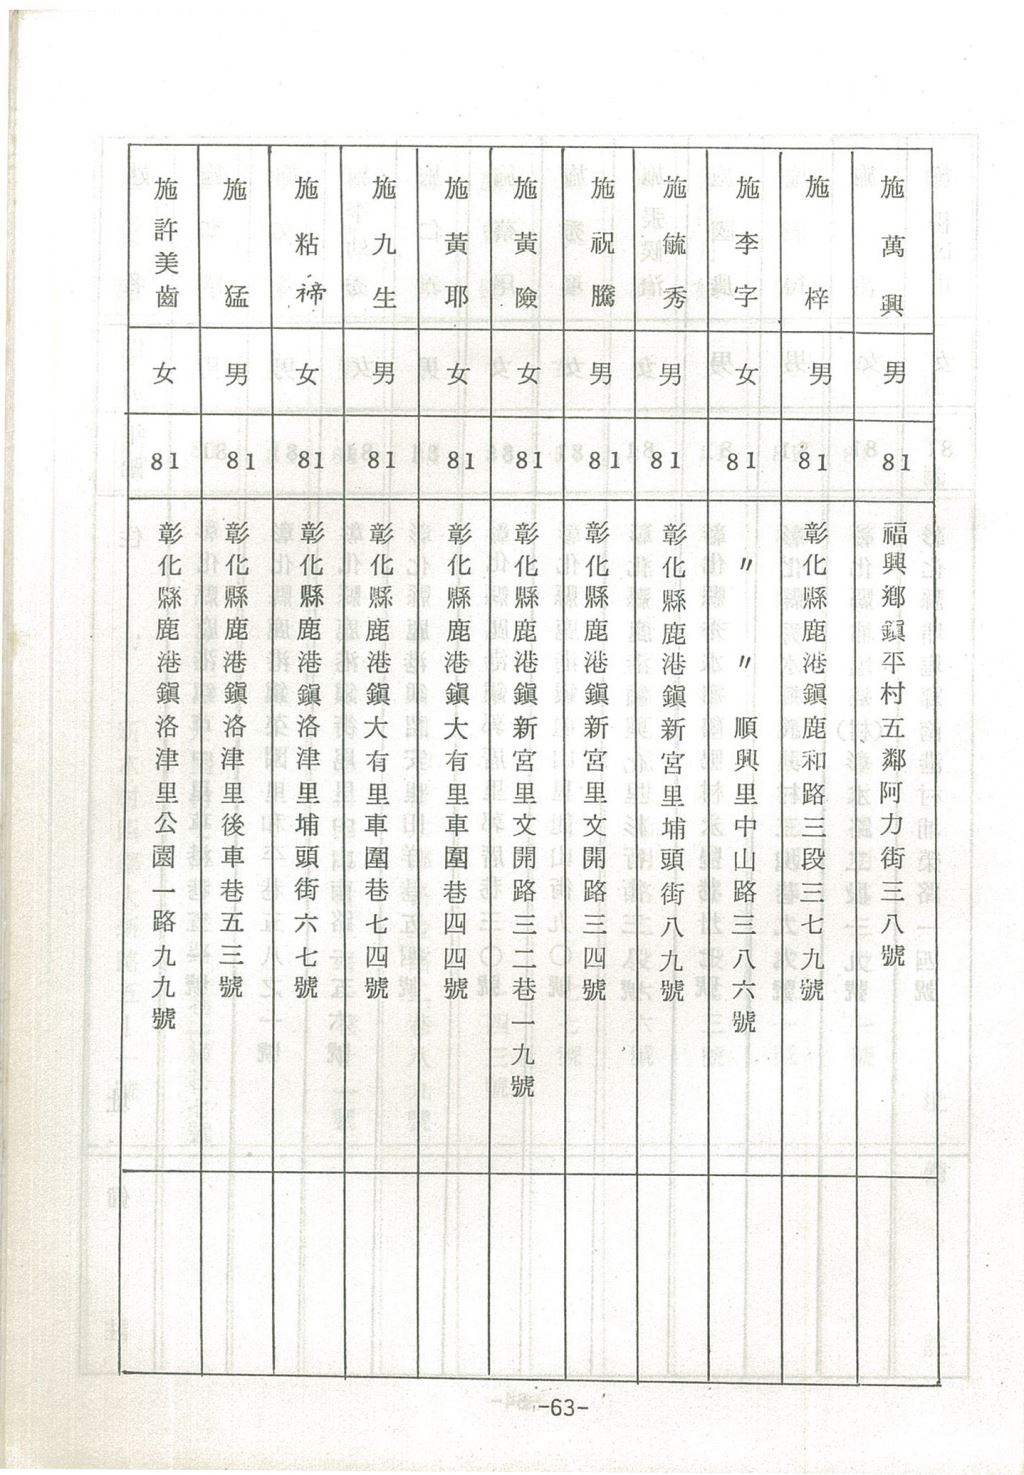 施萬興 男 81 福興鄉鎭平村五鄰阿力街三八號
施梓 男 81 彰化縣鹿港鎭鹿和路三段三七九號
施李字 女 81 〃 〃 順興里中山路三八六號
施毓秀 男 81 彰化縣鹿港鎭新宮里埔頭街八九號
施祝騰 男 81 彰化縣鹿港鎭新宮里文開路三四號
施黃險 女 81 彰化縣鹿港鎭新宮里文開路三二巷一九號
施黃耶 女 81 彰化縣鹿港鎭大有里車圍巷四四號
施九生 男 81 彰化縣鹿港鎭大有里車圍巷七四號
施粘禘 女 81 彰化縣鹿港鎭洛津里埔頭街六七號
施猛 男 81 彰化縣鹿港鎭洛津里後車巷五三號
施許美齒 女 81 彰化縣鹿港鎭洛津里公園一路九九號
-63-